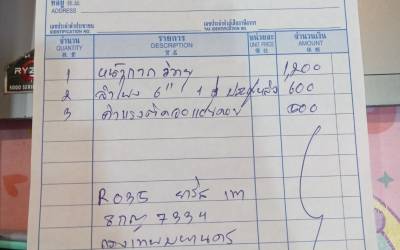 ที่อยู่
ADDRESS
เลขประจำตัวประชาชน
IDENTIFICATION NO.
เลขประจำตัวผู้เสียภาษีอากร
TAX IDENTIFICATION NO.
จำนวน รายการ หน่วยละ จำนวนเงิน
QUANTITY DESCRIPTION UNIT PRICE AMOUNT
1 หน้ากาก วิทยุ 1,200
2 ลำโพง 6" 1 คู่ 600
3 ค่าแรงติดจอ
R035 ยาริส เทา
7334
กรุงเทพมหานคร
RYZ
5000 SERIES